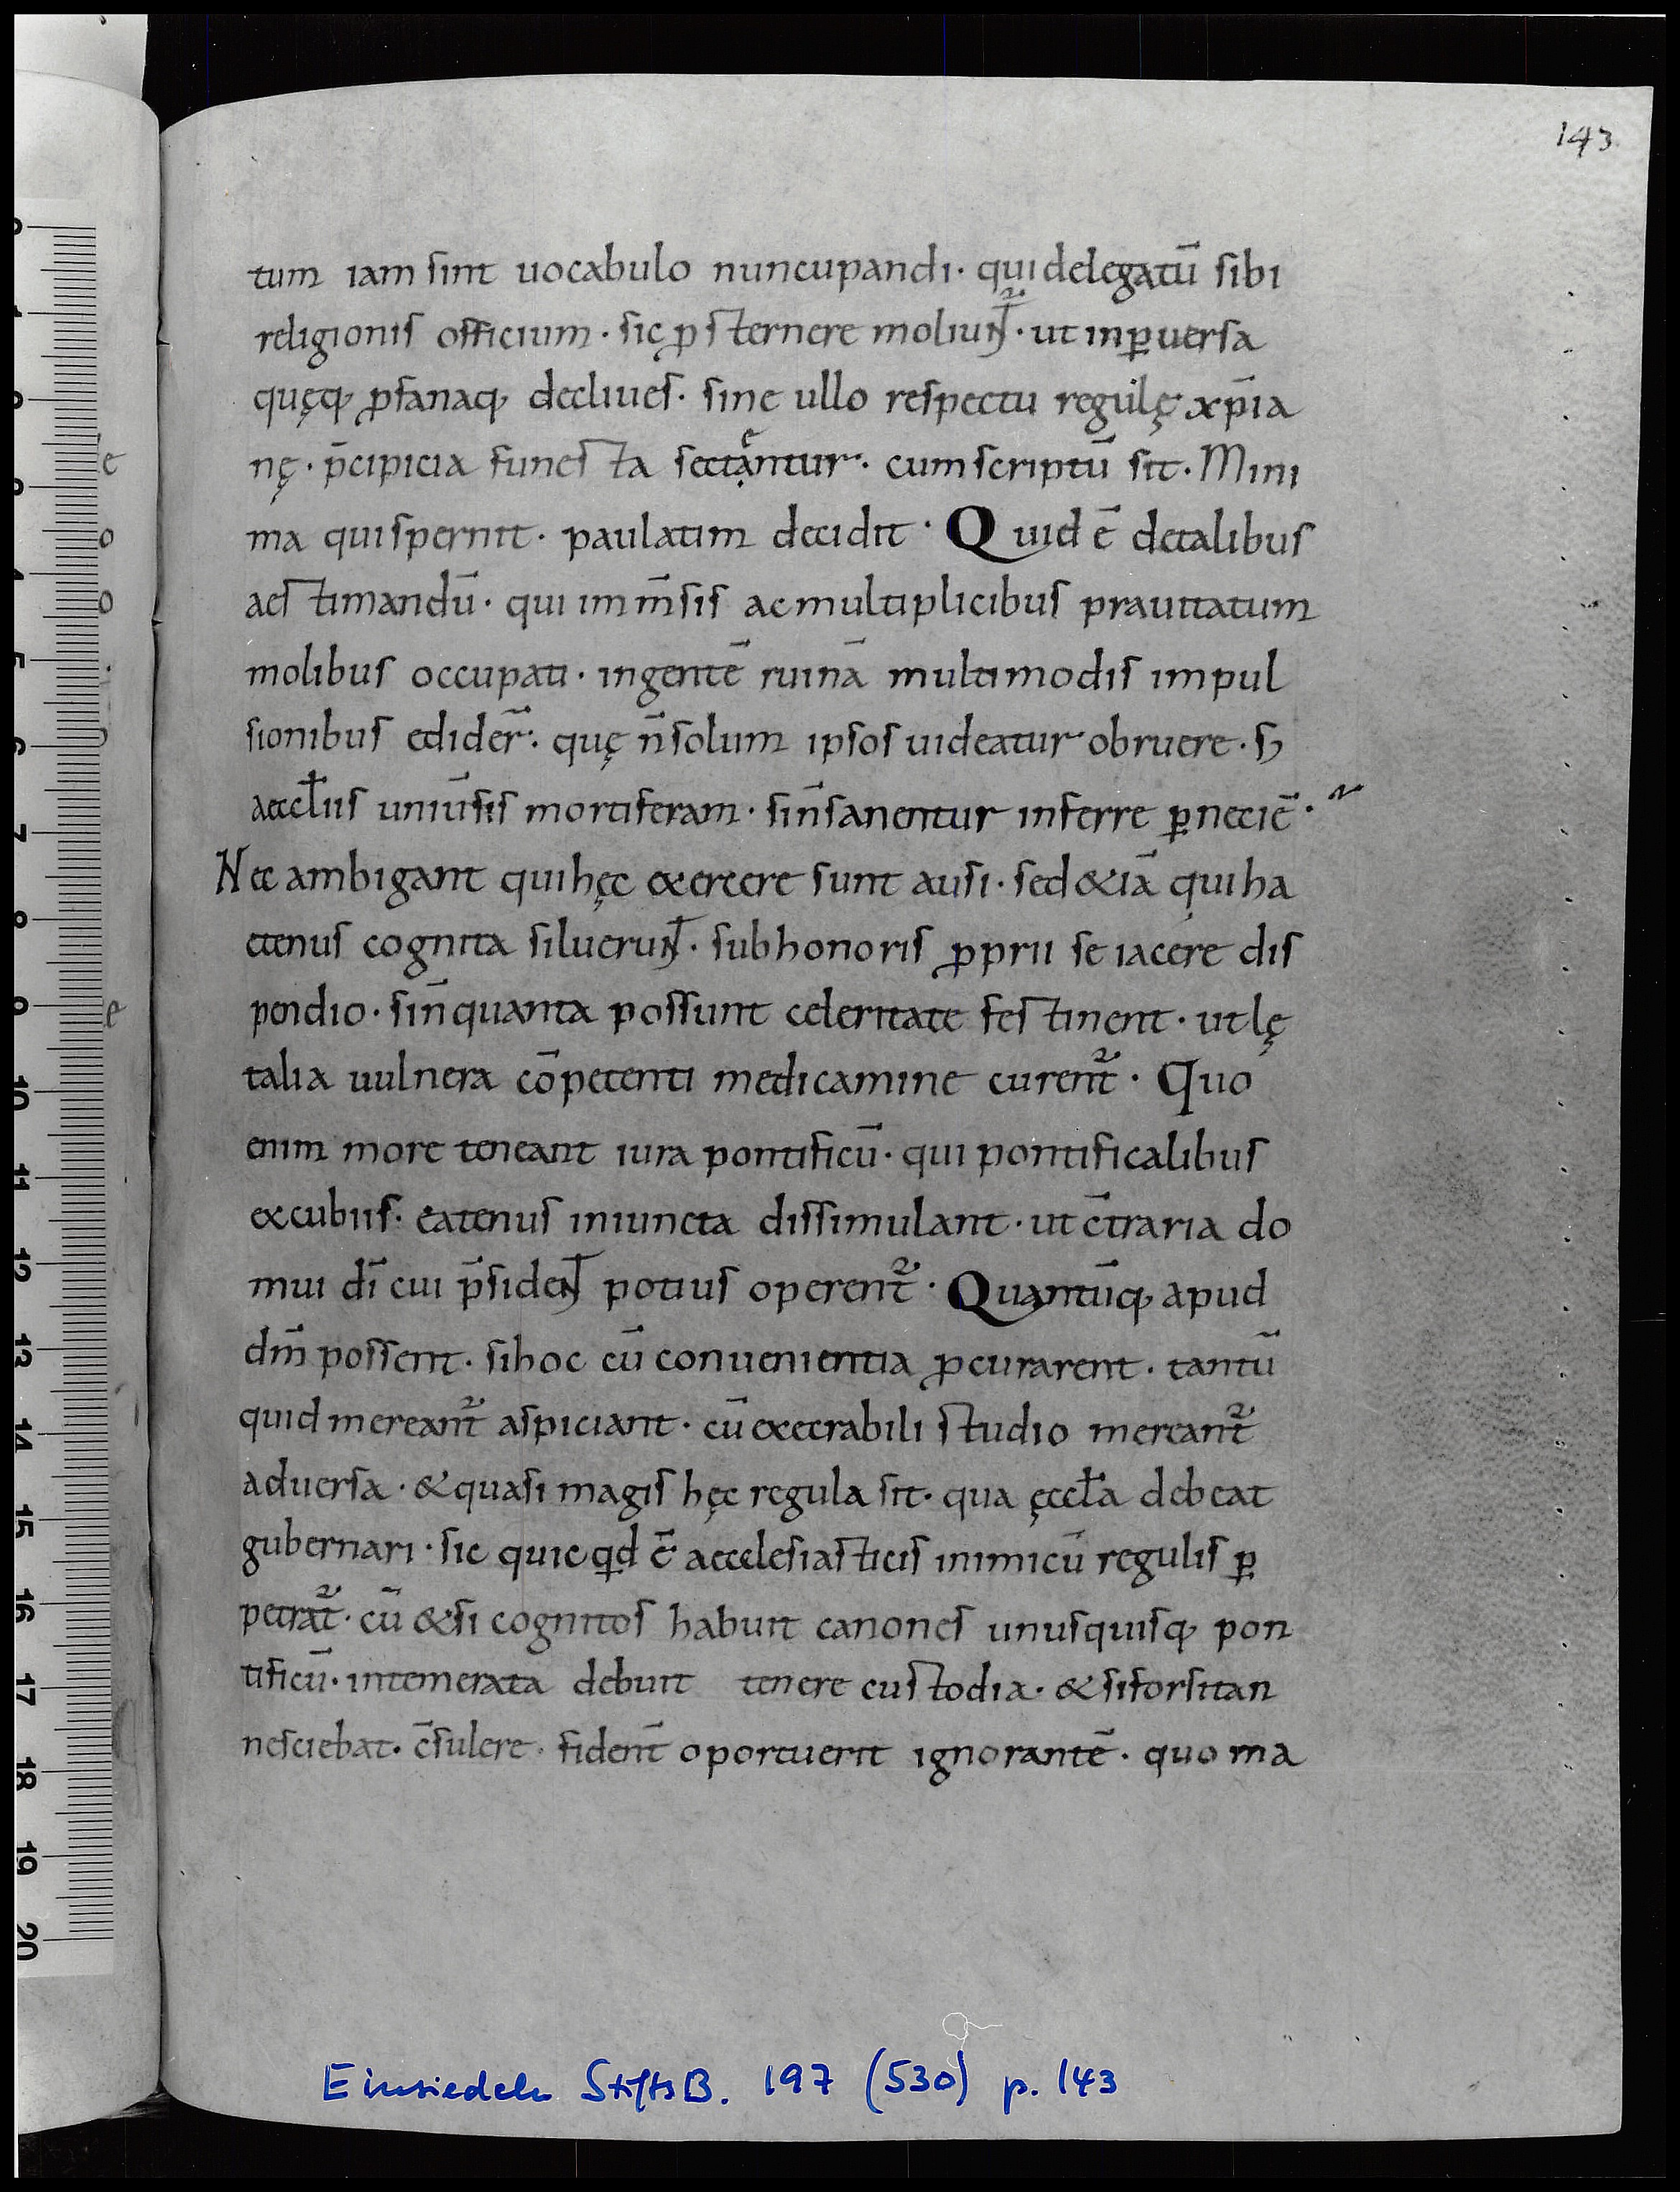 143
tum iam sint uocabulo nuncupandi · qui delegatū sibi
religionis officium · sic ꝓsternere moliunt᷑ · ut in ꝑuersa
quęq; ꝓfanaq; decliues · sine ullo respectu regulę xp̄ia
nę · p̄cipicia funesta sectẹntur · cum scriptū sit · Mini
ma qui spernit · paulatim decidit · Quid ē de talibus
aestimandū · qui imm̄sis ac multiplicibus prauitatum
molibus occupati · ingentē ruinā multimodis impul
sionibus edider̄ · quę n̄ solum ipsos uideatur obruere · s;
aeccl̄iis uniūsis mortiferam · sin̄ sanentur inferre ꝑneciē ·
Nec ambigant qui hęc exercere sunt ausi · sed &iā qui ha
ctenus cognita siluerunt · sub honoris ꝓprii se iacere dis
pendio · sin̄ quanta possunt celeritate festinent · ut lę
talia uulnera cōpetenti medicamine curent᷑ · Quo
enim more teneant iura pontificū · qui pontificalibus
excubiis · eatenus iniuncta dissimulant · ut c̄traria do
mui dī cui p̄sident potius operent᷑ · Quantūq; apud
dm̄ possent · si hoc cū conuenientia ꝓcurarent · tantū
quid mereant᷑ aspiciant · cū execrabili studio mereant᷑
aduersa · & quasi magis hęc regula sit · qua ęccl̄a debeat
gubernari · sic quicqd ē aecclesiasticis inimicū regulis ꝑ
petrat᷑ · cū &si cognitos habuit canones unusquisq; pon
tificū · intemerata debuit tenere custodia · & si forsitan
nesciebat · c̄sulere · fident̄ oportuerit ignorantē · quo ma
Einsiedeln StiftsB. 197 (530) p. 143
0
1
2
3
4
5
6
7
8
9
10
11
12
13
14
15
16
17
18
19
20